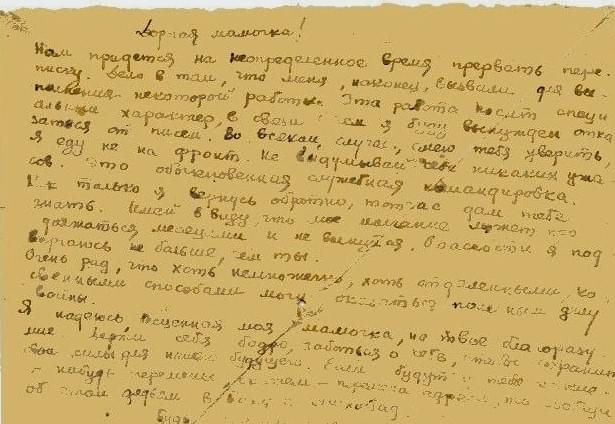 Дорогая мамочка!
Нам придется на неопределенное время прервать пере-
писку. Дело в том, что меня, наконец, вызвали для вы-
полнения некоторой работы. Эта работа носит специ
альный характер, в связи с чем я буду вынужден отка
заться от писем. Во всяком случае, смею тебя уверить,
я еду не на фронт. Не выдумывай себе никаких ужа-
сов. Это обыкновенная служебная командировка.
Как только я вернусь обратно, тотчас дам тебе
знать. Имей в виду, что мое молчание может про
должаться месяцами и не волнуйся, опасности я под
вергаюсь не больше, чем ты.
Очень рад, что хоть немножечко, хоть отдаленными, ко
свенными способами могу оказаться полезным делу
войны.
Я надеюсь, бесценная моя мамочка, на твое благоразу
мие. Держи себя бодро, заботься о себе, чтобы сохранить
свои силы для нашего будущего. Если будут у тебя
нибудь перемены адреса, то сообщи
об этом дядям в
будь